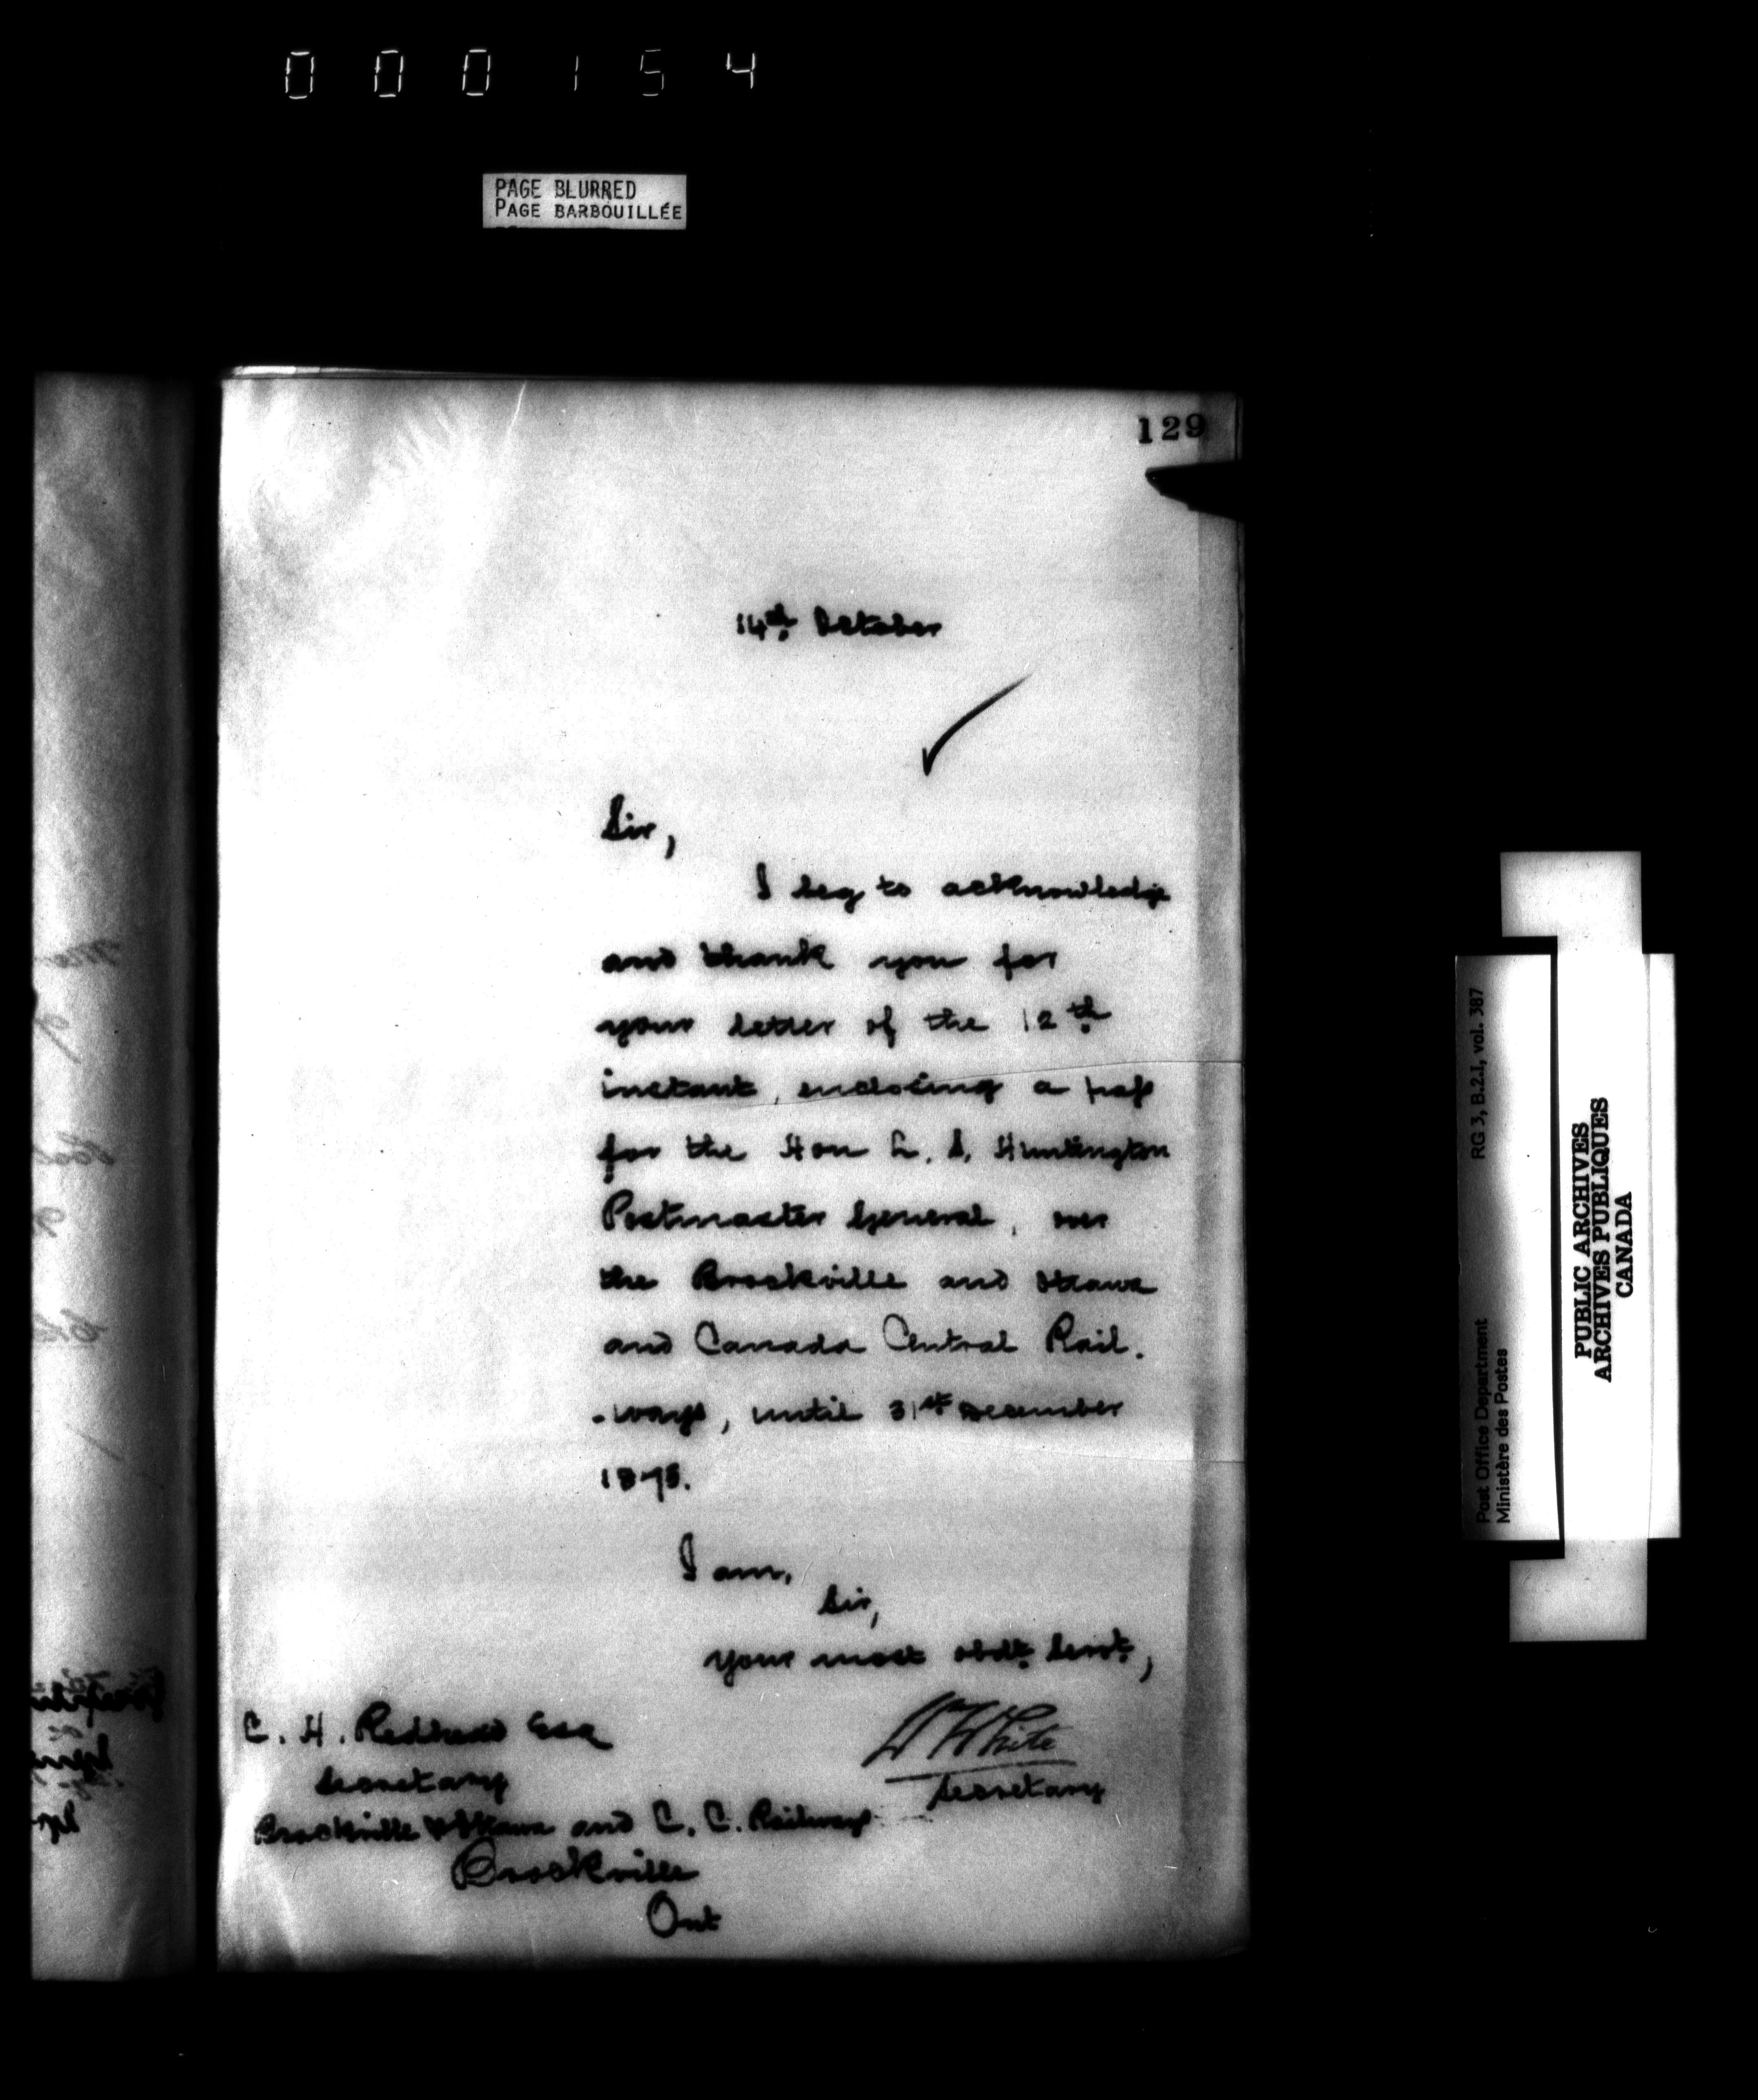 000154
PAGE BLURRED
PAGE BARBOUILLÉE
129
14th October
Sir,
I beg to acknowledge
and thank you for
your letter of the 12th
instant, enclosing a pass
for the Hon L. S. Huntington
Postmaster General, over
the Brockville and Ottawa
and Canada Central Rail-
-ways, until 31st December
1875.
I am,
Sir,
Your most obdt. Servt.,
W White
Secretary
C. H. Redhead Esq
Secretary
Brockville & Ottawa and C. C. Railways
Brockville
Ont
RG 3, B.2.1, vol. 387
Post Office Department
Ministère des Postes
PUBLIC ARCHIVES
ARCHIVES PUBLIQUES
CANADA